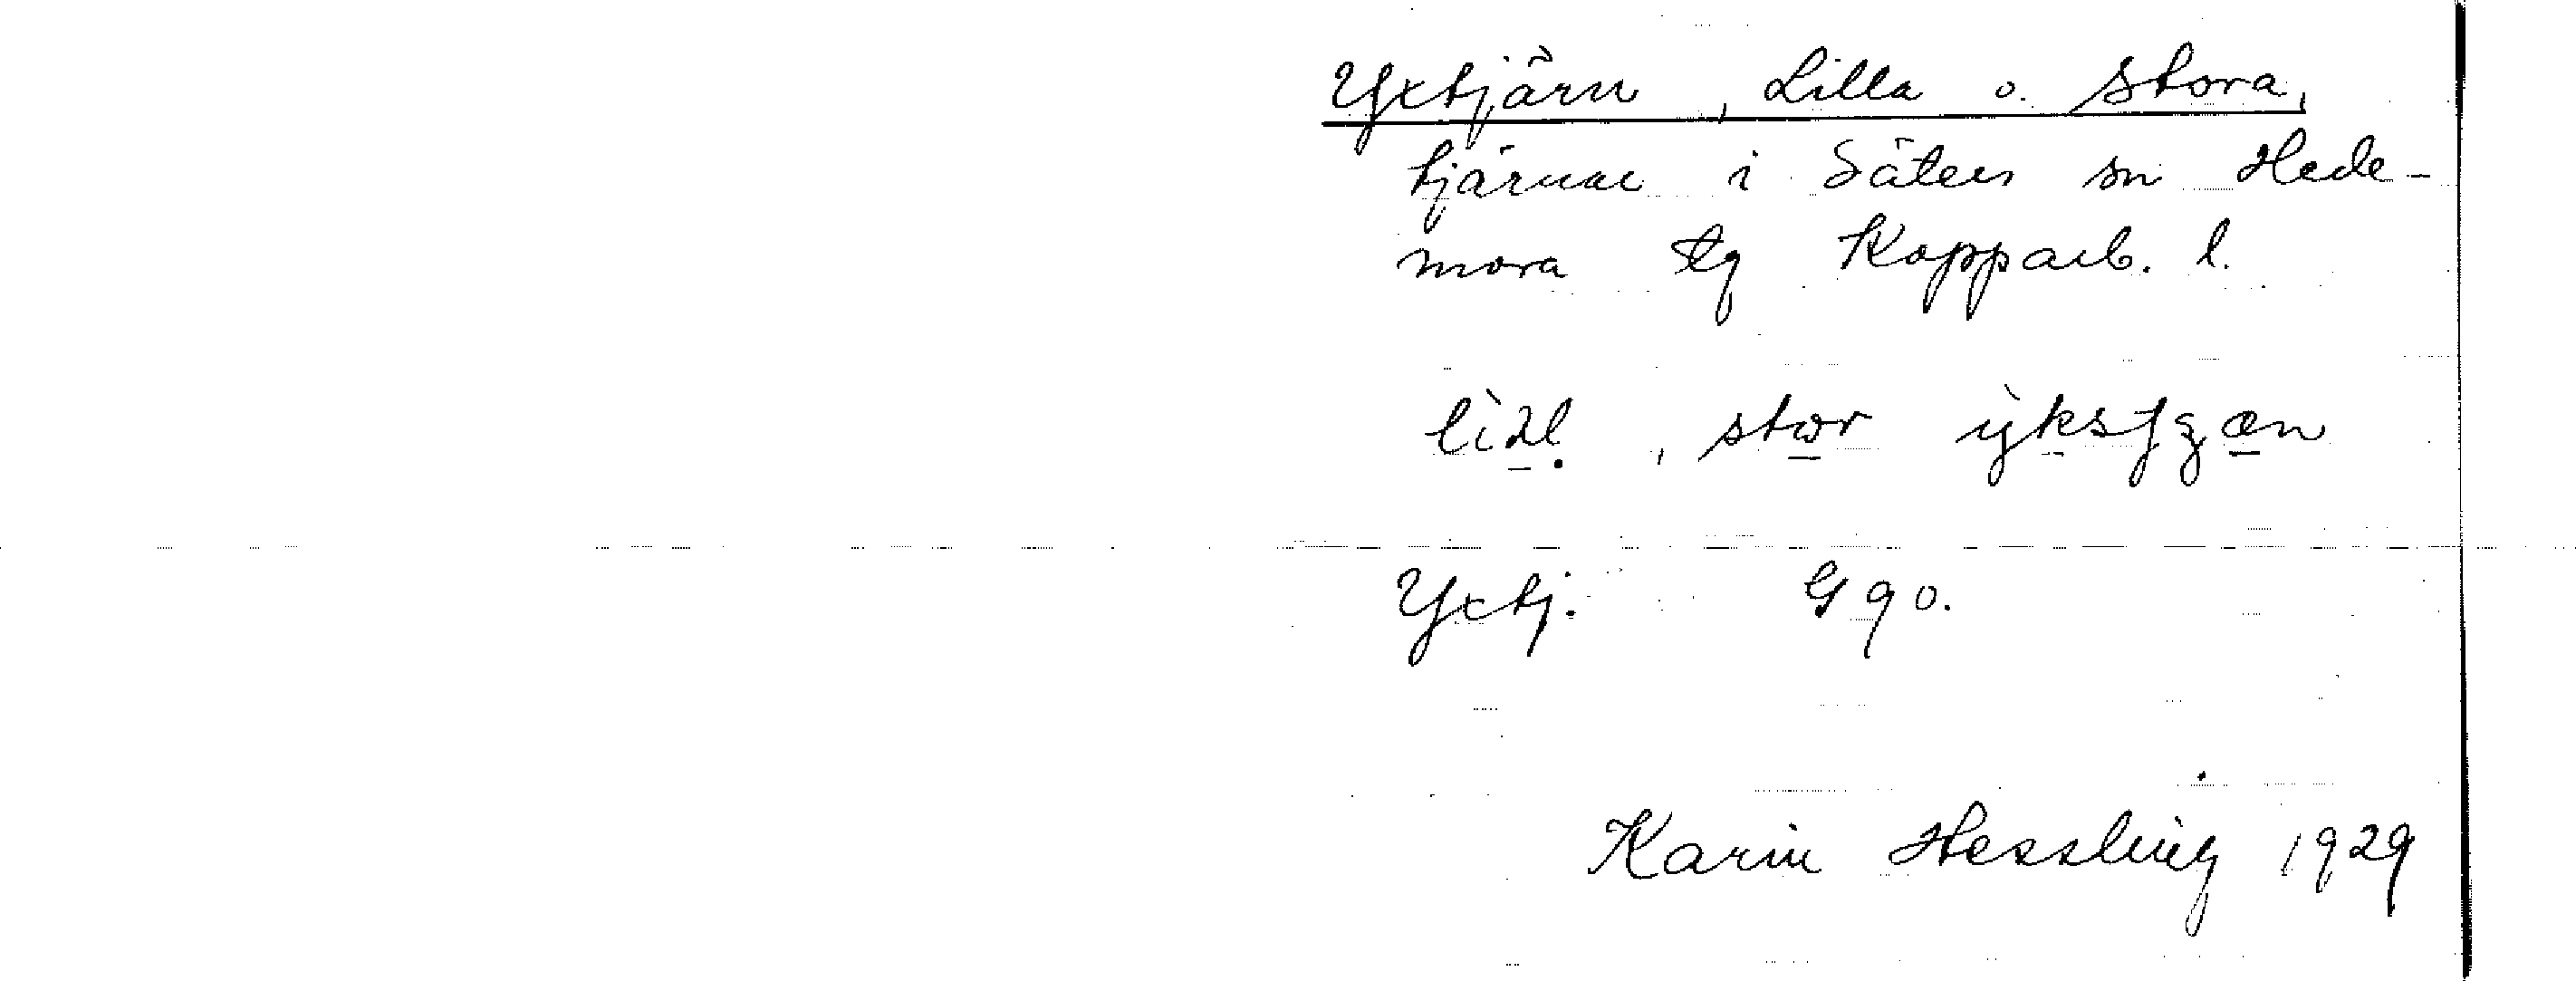 Yxtjärn, Lilla o. Stora,
tjärnar i Säters sn Hede-
mora tg Kopparb. l.
Yxtj. G 90.
Karin Hessling 1929